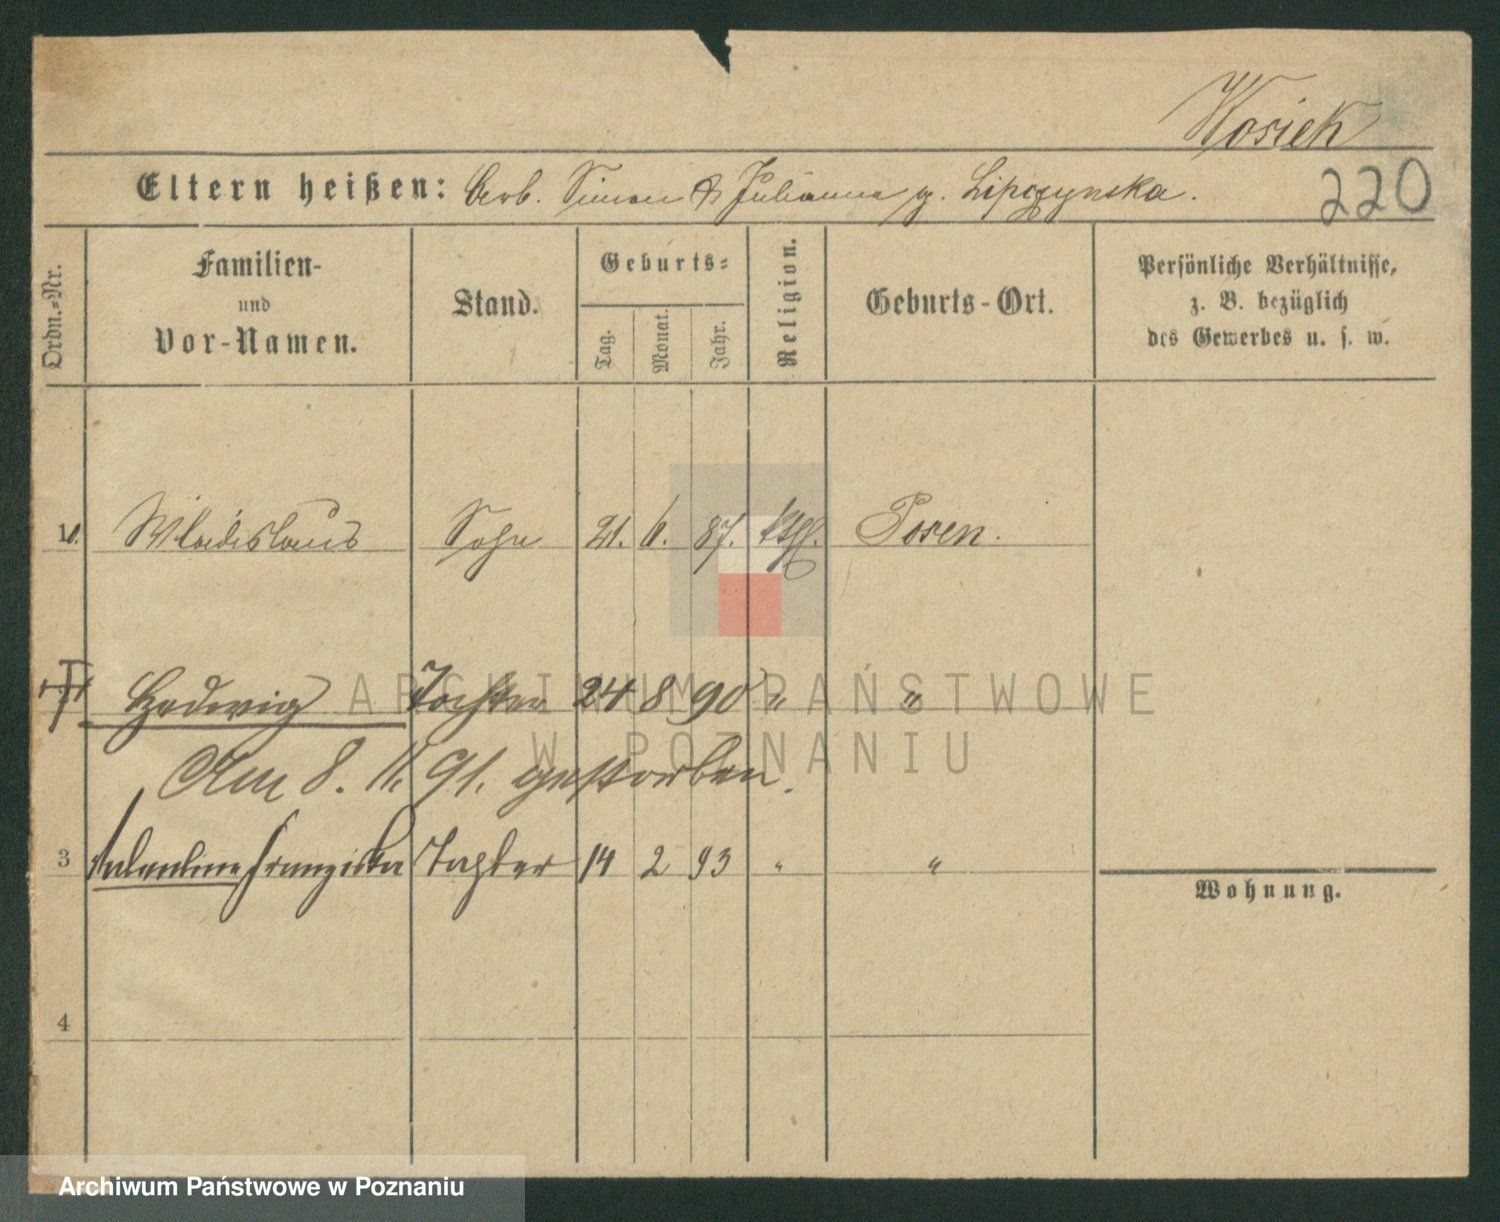 Kosick
Eltern heißen: Arb. Simon & Julianna g. Lipczynska.
220
Ordn.-Nr.
Familien-
und
Vor-Namen.
Stand.
Geburts-
Tag.
Monat.
Jahr.
Religion.
Geburts-Ort.
Persönliche Verhältnisse,
z. B. bezüglich
des Gewerbes u. s. w.
1. Wladislaus Sohn 21. 6. 87. kthl. Posen.
Hedwig Tochter 24 8 90 " "
Am 8. 11. 91. gestorben.
3 Franziska Tochter 14 2 93 " "
Wohnung.
4
ARCHIWUM PAŃSTWOWE
W POZNANIU
Archiwum Państwowe w Poznaniu